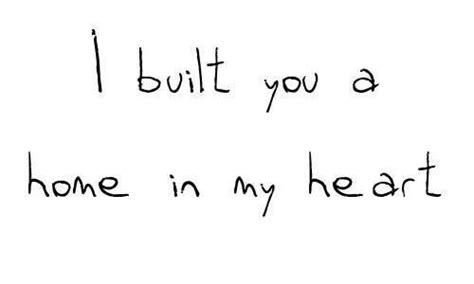 I built you a
home in my heart